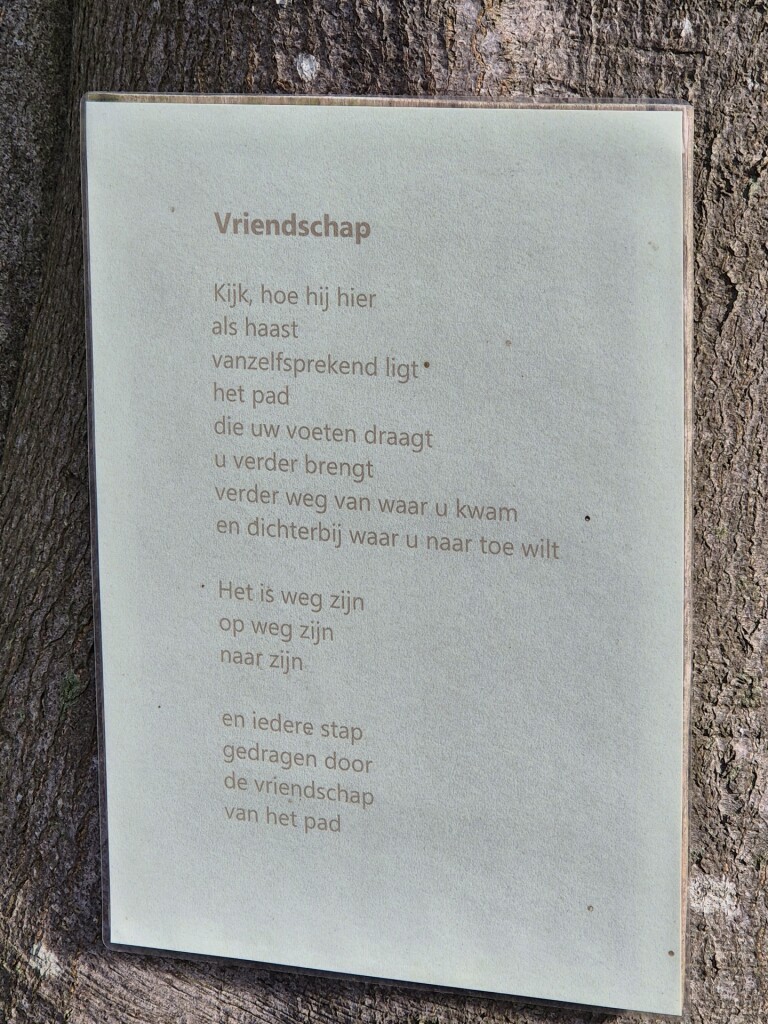 Vriendschap
Kijk, hoe hij hier
als haast
vanzelfsprekend ligt
het pad
die uw voeten draagt
u verder brengt
verder weg van waar u kwam
en dichterbij waar u naar toe wilt
Het is weg zijn
op weg zijn
naar zijn
en iedere stap
gedragen door
de vriendschap
van het pad